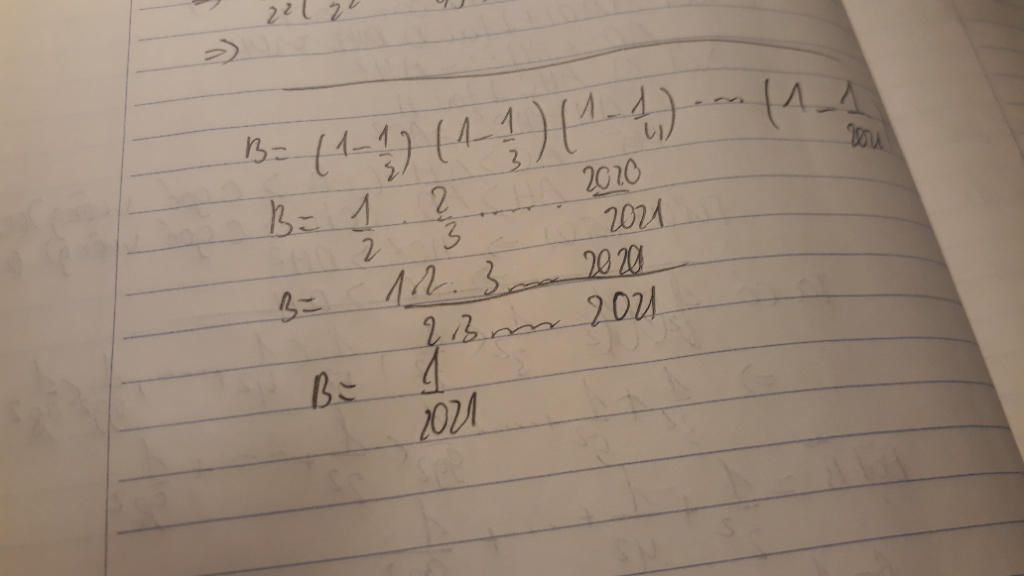 ⇒
B= (1-1/2) (1-1/3) (1-1/4) ..... (1-1/2021
B= 1/2 . 2/3 ...... 2020/2021
B= 1.2.3.... 2020 / 2.3..... 2021
B= 1/2021